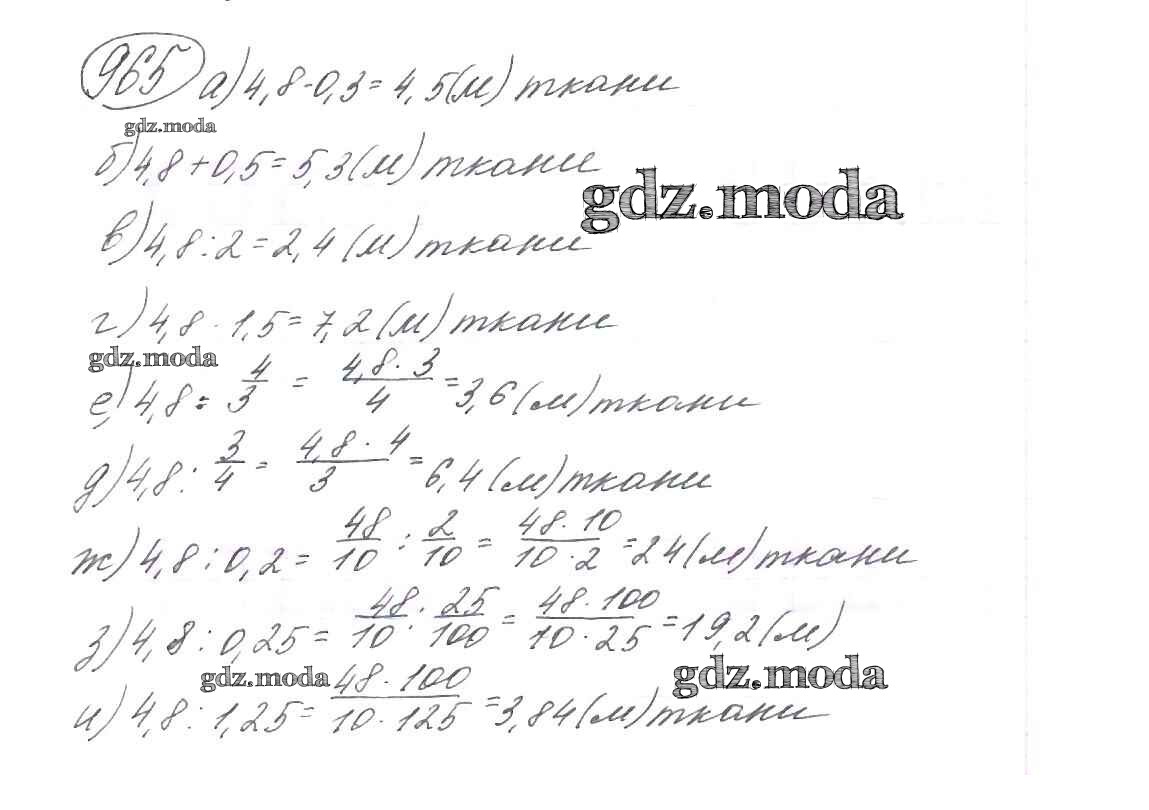 965 а) 4,8-0,3=4,5(м) ткани
gdz.moda
б) 4,8+0,5=5,3(м) ткани
gdz.moda
в) 4,8:2=2,4(м) ткани
г) 4,8·1,5=7,2(м) ткани
gdz.moda
е) 4,8 : 4/3 = 4,8·3/4 = 3,6(м) ткани
д) 4,8 : 3/4 = 4,8·4/3 = 6,4(м) ткани
ж) 4,8 : 0,2 = 48/10 : 2/10 = 48·10/10·2 = 24(м) ткани
з) 4,8 : 0,25 = 48/10 : 25/100 = 48·100/10·25 = 19,2(м)
gdz.moda gdz.moda
и) 4,8 : 1,25 = 48·100/10·125 = 3,84(м) ткани